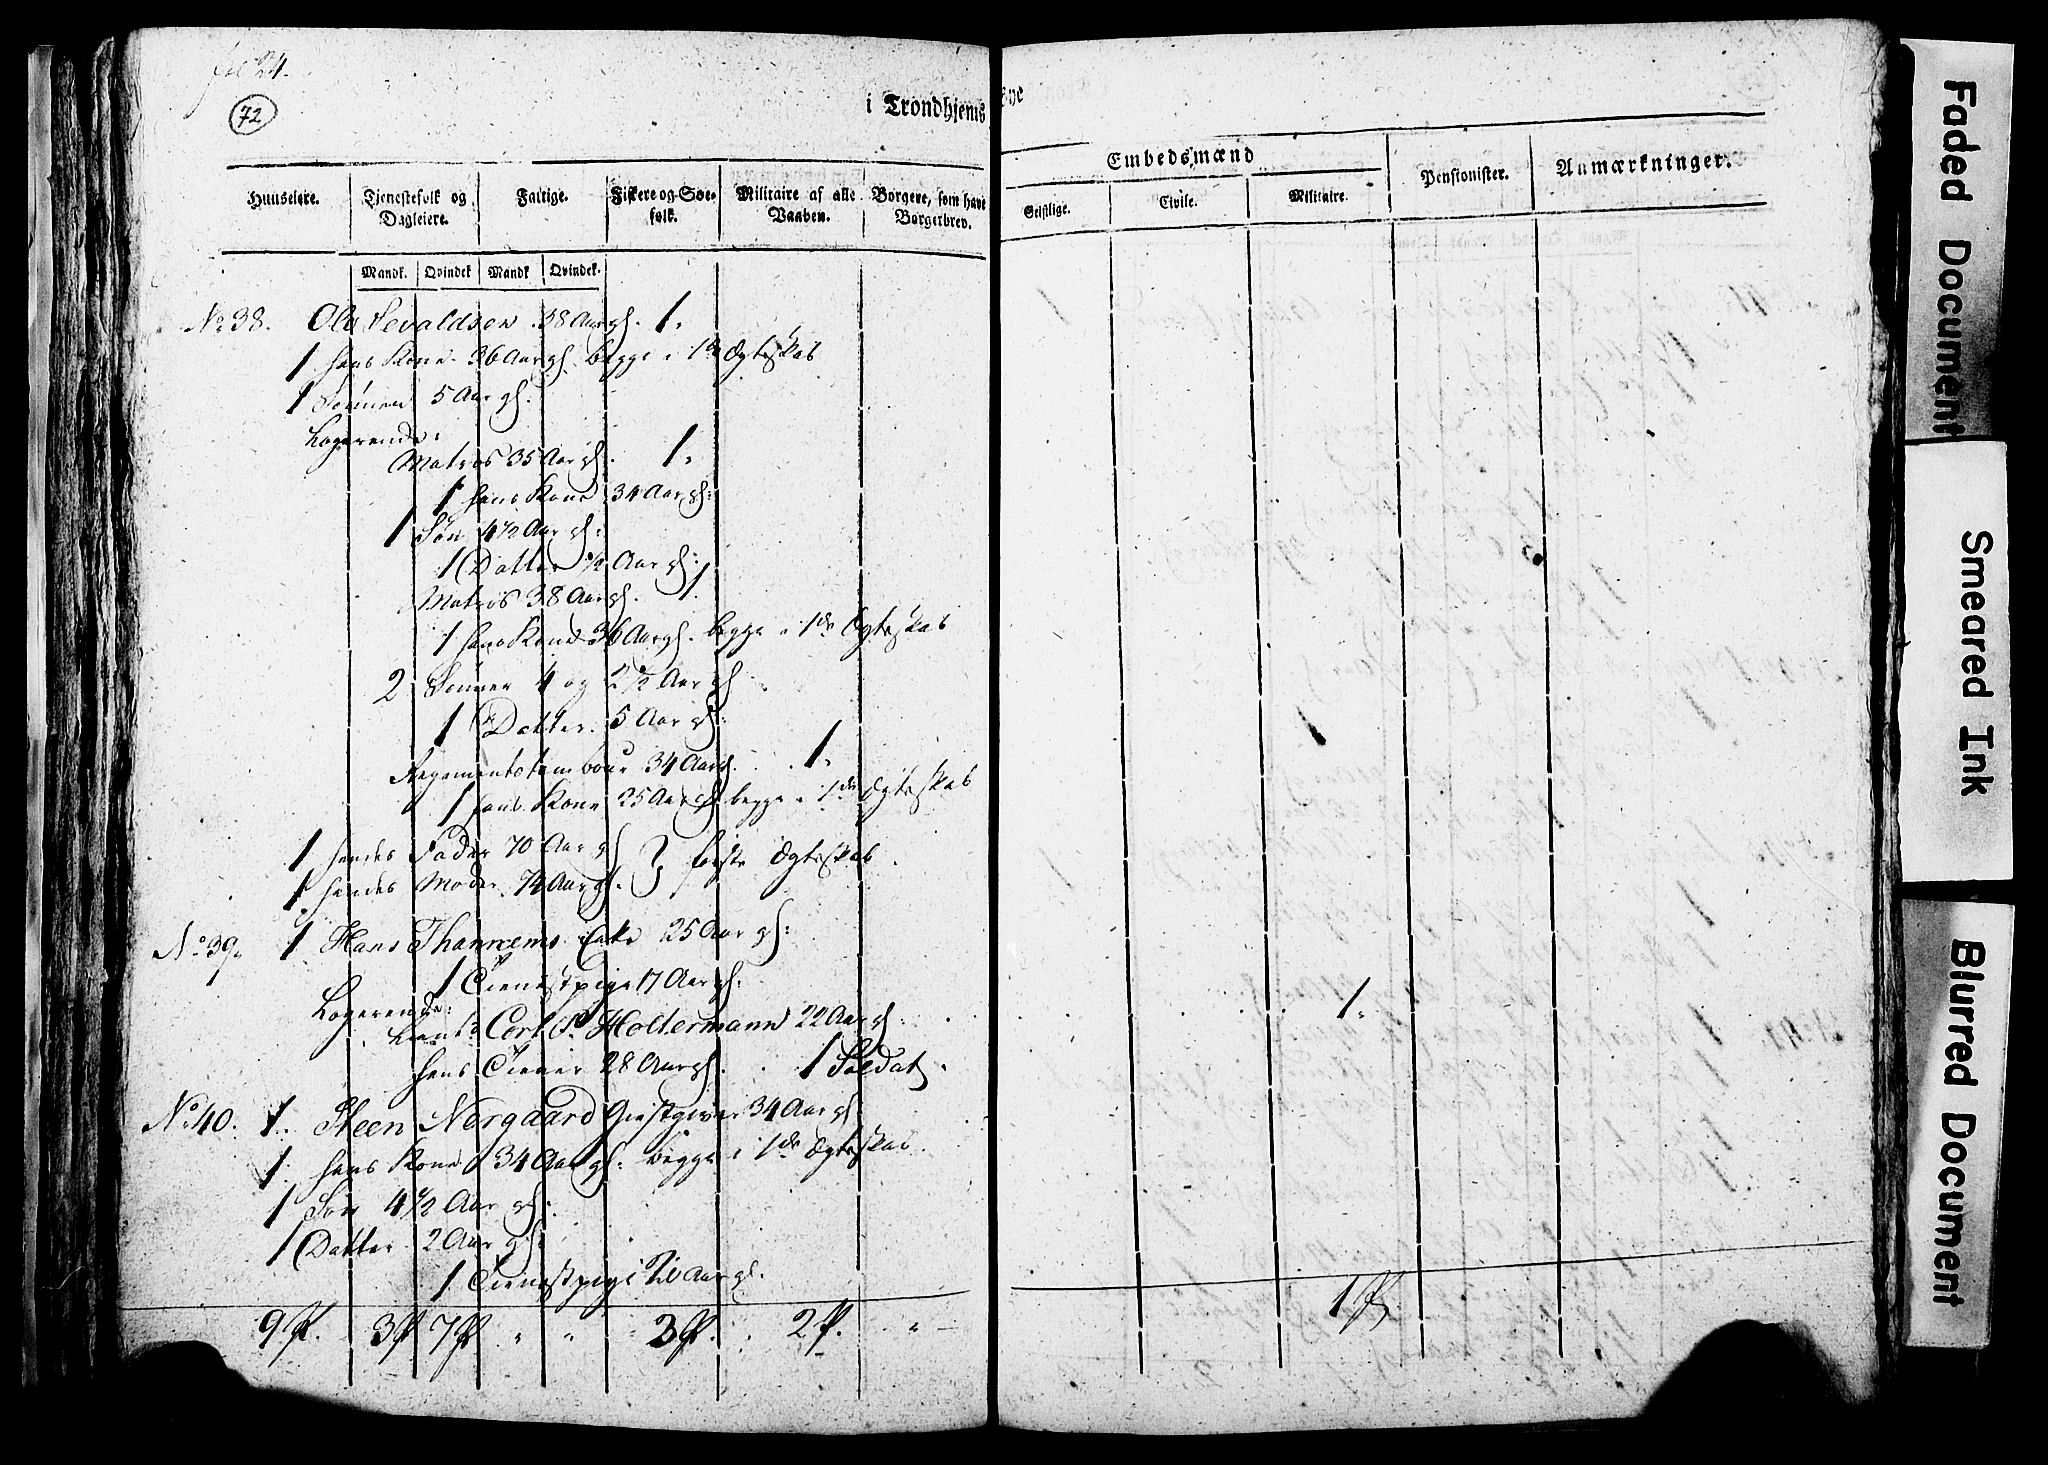 fol 24.
72
i Trondhjems Bye
Huuseiere. Tjenestefolk og Dagleiere. Fattige. Fiskere og Søefolk. Militaire af alle Vaaben. Borgere, som have Borgerbrev. Embedsmænd Geistlige. Civile. Militaire. Pensionister. Anmærkninger.
Mandk. Qvindek. Mandk Qvindek.
No 38. Ole Sevaldsen 38 Aar gl. 1.
1 hans Kone 36 Aar gl. begge i 1de Ægteskab
1 Sønnen 5 Aar gl.
Logerende:
Matros 35 Aar gl. 1.
1 hans Kone 34 Aar gl:
1 Søn 4½ Aar gl:
1 Datter ½ Aar gl:
Matros 38 Aar gl. 1
1 hans Kone 36 Aar gl. begge i 1de Ægteskab
2 Sønner 4 og 2½ Aar gl
1 Datter 5 Aar gl:
Regementstambour 34 Aar gl. 1.
1 hans Kone 35 Aar gl begge i 1de Ægteskab
1 hendes Fader 70 Aar gl
1 hendes Moder 74 Aar gl. } første Ægteskab
No 39. 1 Hans Thanæms Enke 25 Aar gl:
1 Tienestpige 17 Aar gl:
Logerende:
Lieut: Carl P. Holtermann 22 Aar gl: 1.
hans Tiener 28 Aar gl. 1 Soldat.
No 40. 1. Steen Norgaard Giestgiver 34 Aar gl
1 hans Kone 34 Aar gl: begge i 1de Ægteskab
1 Søn 4½ Aar gl:
1 Datter 2 Aar gl:
1 Tienestpige 20 Aar gl.
9 P. 3 P 7 P " " 3 P. 2 P. " 1 P.
Faded Document
Smeared Ink
Blurred Document